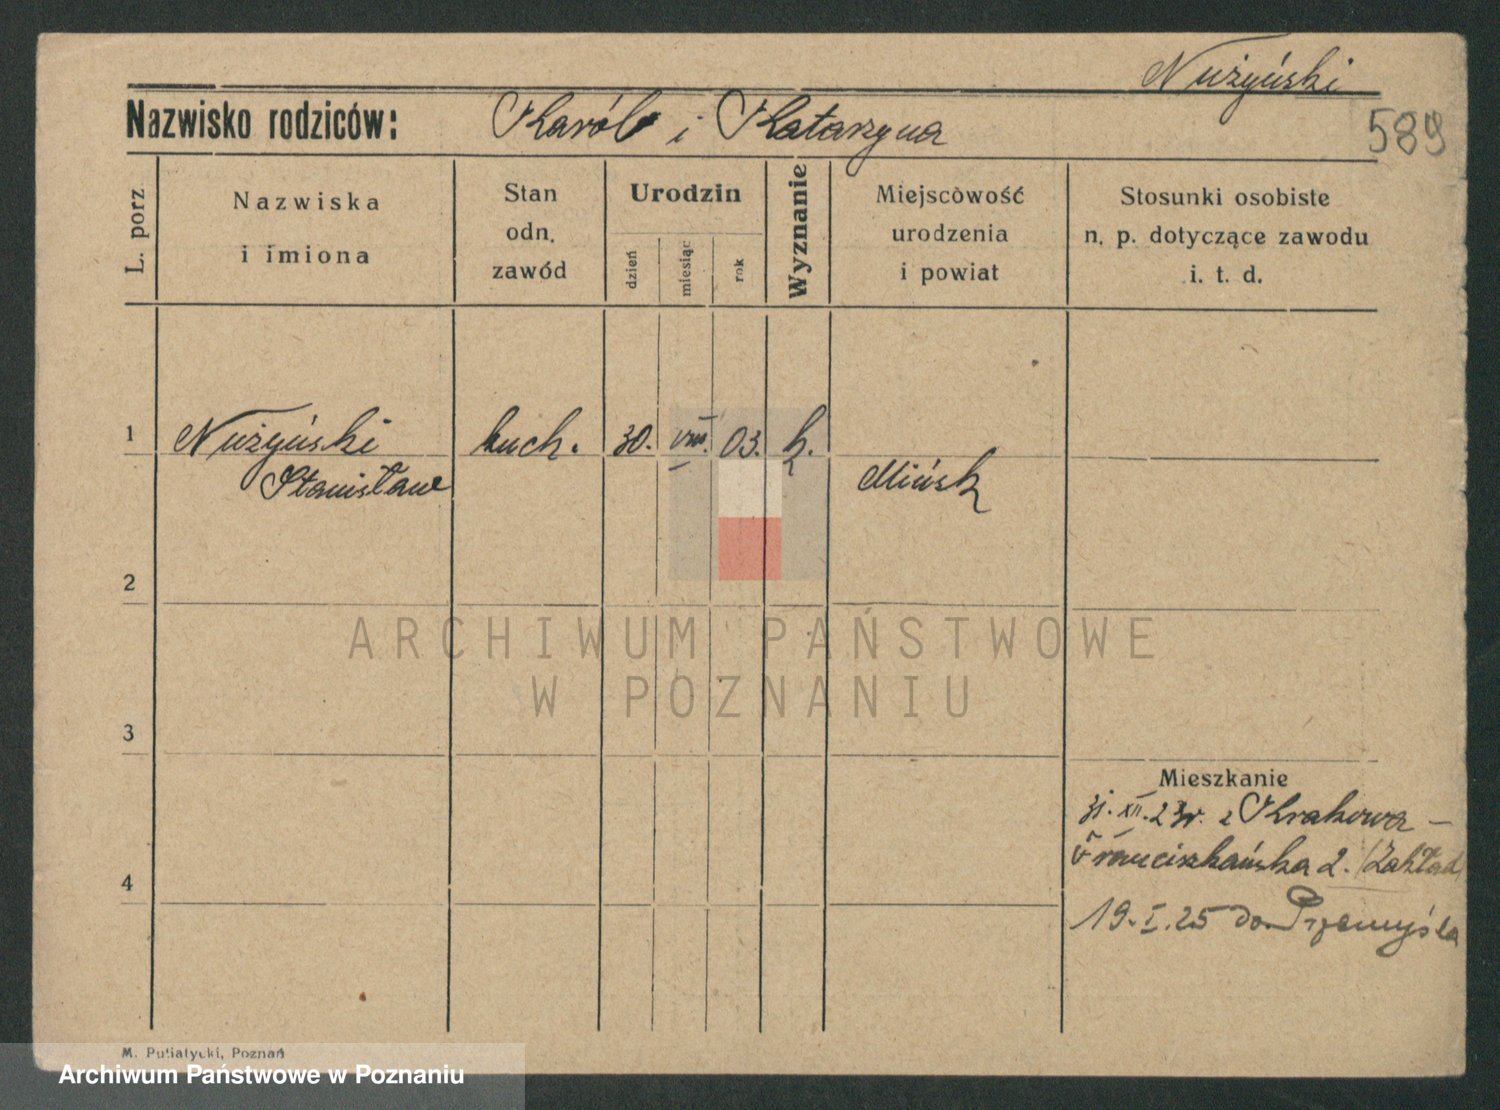 Nużyński
Nazwisko rodziców: Karól i Katarzyna
589
L. porz
Nazwiska
i imiona
Stan
odn.
zawód
Urodzin
dzień
miesiąc
rok
Wyznanie
Miejscowość
urodzenia
i powiat
Stosunki osobiste
n. p. dotyczące zawodu
i. t. d.
1
Nużyński kuch. 30. VIII. 03. k.
Stanisław Mińsk
2
ARCHIWUM PAŃSTWOWE
W POZNANIU
3
Mieszkanie
31. XII. 23r. z Krakowa –
Franciszkańska 2. (Zakład)
4
19. I. 25 do Przemyśla
M. Putiatycki, Poznań
Archiwum Państwowe w Poznaniu